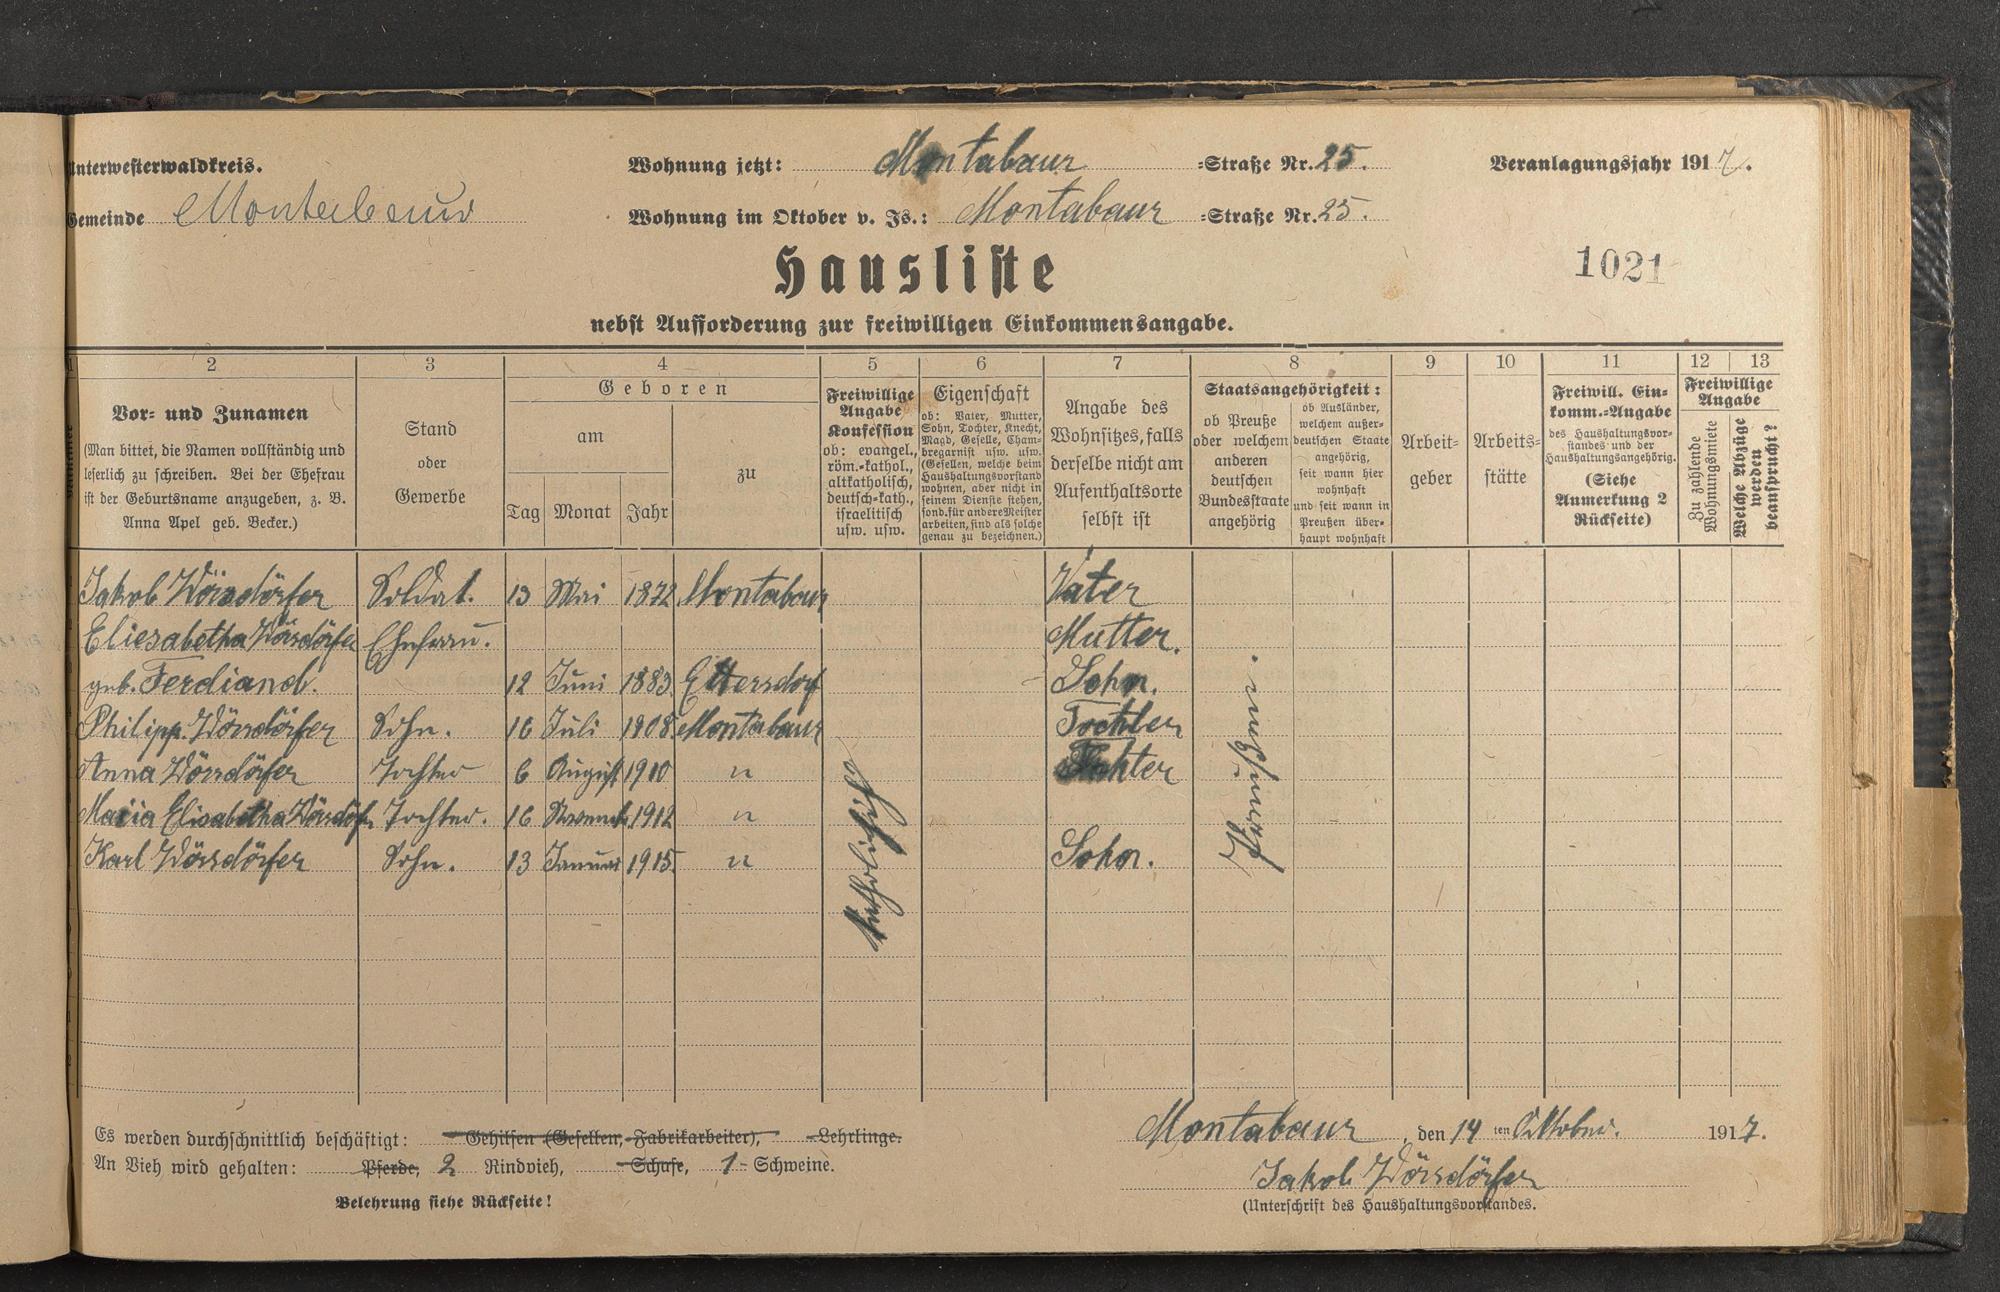 Unterwesterwaldkreis.
Wohnung jetzt: Montabaur =Straße Nr. 25.
Veranlagungsjahr 1917.
Gemeinde Montabaur
Wohnung im Oktober v. Js.: Montabaur =Straße Nr. 25.
Hausliste
1021
nebst Aufforderung zur freiwilligen Einkommensangabe.
1 2 3 4 5 6 7 8 9 10 11 12 13
Vor- und Zunamen
(Man bittet, die Namen vollständig und
leserlich zu schreiben. Bei der Ehefrau
ist der Geburtsname anzugeben, z. B.
Anna Apel geb. Becker.)
Stand
oder
Gewerbe
Geboren
am
Tag Monat Jahr
zu
Freiwillige
Angabe
Konfession
ob: evangel.,
röm.-kathol.,
altkatholisch,
deutsch-kath.,
israelitisch
usw. usw.
Eigenschaft
ob: Vater, Mutter,
Sohn, Tochter, Knecht,
Magd, Geselle, Cham-
bregarnist usw. usw.
(Gesellen, welche beim
Haushaltungsvorstand
wohnen, aber nicht in
seinem Dienste stehen,
sond. für andere Meister
arbeiten, sind als solche
genau zu bezeichnen.)
Angabe des
Wohnsitzes, falls
derselbe nicht am
Aufenthaltsorte
selbst ist
Staatsangehörigkeit:
ob Preuße
oder welchem
anderen
deutschen
Bundesstaate
angehörig
ob Ausländer,
welchem außer-
deutschen Staate
angehörig,
seit wann hier
wohnhaft
und seit wann in
Preußen über-
haupt wohnhaft
Arbeit-
geber
Arbeits-
stätte
Freiwill. Ein-
komm.-Angabe
des Haushaltungsvor-
standes und der
Haushaltungsangehörig.
(Siehe
Anmerkung 2
Rückseite)
Freiwillige
Angabe
Zu zahlende
Wohnungsmiete
Welche Abzüge
werden
beansprucht?
Jakob Wörsdörfer Soldat. 13 Mai 1872 Montabaur Vater
Eliesabetha Wörsdörfer Ehefrau. Mutter.
geb. Ferdiand. 12 Juni 1883. Ettersdorf Sohn.
Philipp. Wörsdörfer Sohn. 16 Juli 1908. Montabaur Tochter
Anna Wörsdörfer Tochter 6 August 1910 " Tochter
Maria Elisabetha Wörsdörfer Tochter. 16 November 1912 "
Karl Wörsdörfer Sohn. 13 Januar 1915. " Sohn.
katholisch
Es werden durchschnittlich beschäftigt: Gehilfen (Gesellen, Fabrikarbeiter), Lehrlinge.
An Vieh wird gehalten: Pferde, 2 Rindvieh, Schafe, 1 Schweine.
Belehrung siehe Rückseite!
Montabaur, den 14ten Oktober. 1917.
Jakob Wörsdörfer
(Unterschrift des Haushaltungsvorstandes.